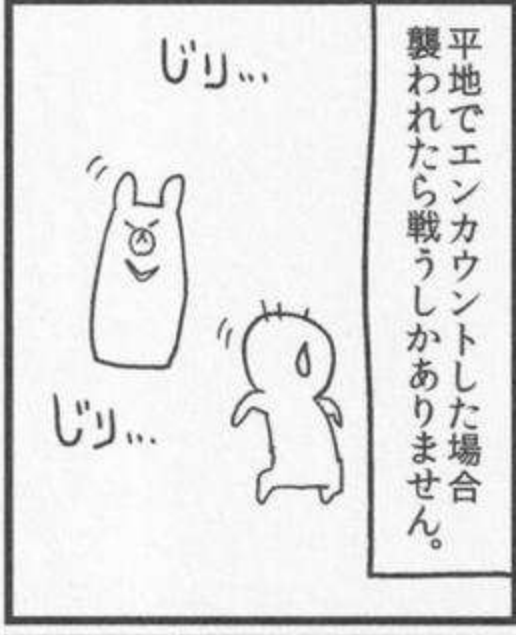 平地でエンカウントした場合
襲われたら戦うしかありません。
じり…
じり…